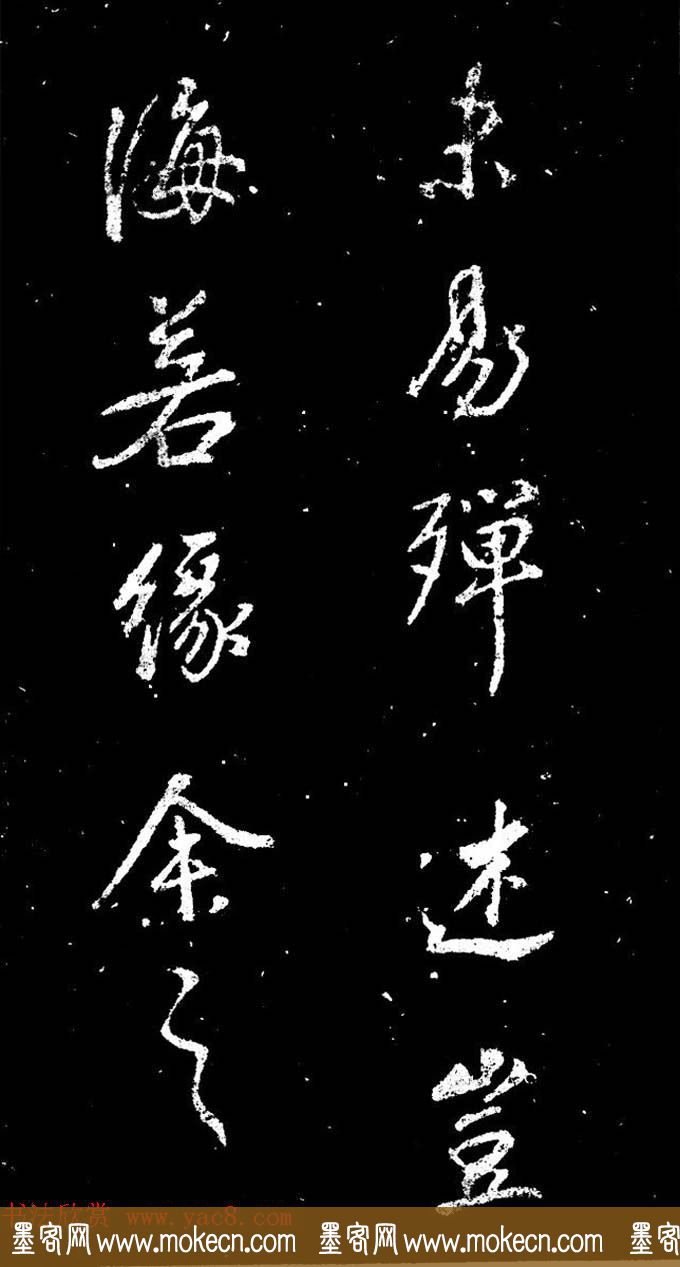 未易殫述豈
海若緣余之
书法欣赏 www.yac8.com
墨客网 www.mokecn.com 墨客网 www.mokecn.com 墨客